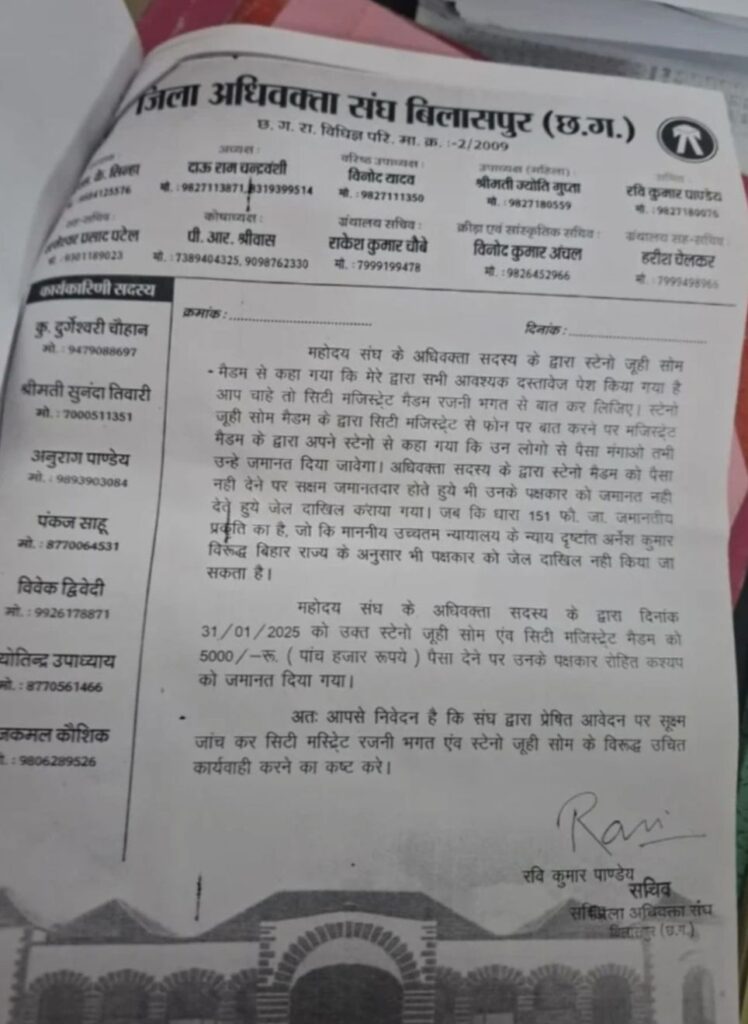 जिला अधिवक्ता संघ बिलासपुर (छ.ग.)
छ. ग. रा. विधिज्ञ परि. मा. क्र. :-2/2009
अध्यक्ष : वरिष्ठ उपाध्यक्ष : उपाध्यक्ष (महिला) : सचिव :
के. सिन्हा दाऊ राम चन्द्रवंशी विनोद यादव श्रीमती ज्योति गुप्ता रवि कुमार पाण्डेय
मो. :9827113871, 8319399514 मो. :9827111350 मो. :9827180559 मो. :9827180076
सह-सचिव : कोषाध्यक्ष : ग्रंथालय सचिव : क्रीड़ा एवं सांस्कृतिक सचिव : ग्रंथालय सह-सचिव :
प्रसाद पटेल पी. आर. श्रीवास राकेश कुमार चौबे विनोद कुमार अंचल हरीश चेलकर
मो. : 9301189023 मो. : 7389404325, 9098762330 मो. :7999199478 मो. : 9826452966 मो. :7999498966
कार्यकारिणी सदस्य
कु. दुर्गेश्वरी चौहान
मो. : 9479088697
श्रीमती सुनंदा तिवारी
मो. : 7000511351
अनुराग पाण्डेय
मो. : 9893903084
पंकज साहू
मो. : 8770064531
विवेक द्विवेदी
मो. : 9926178871
योतिन्द्र उपाध्याय
मो. : 8770561466
जकमल कौशिक
: 9806289526
क्रमांक : ........................................
दिनांक : ........................................
महोदय संघ के अधिवक्ता सदस्य के द्वारा स्टेनो जूही सोम
मैडम से कहा गया कि मेरे द्वारा सभी आवश्यक दस्तावेज पेश किया गया है
आप चाहे तो सिटी मजिस्ट्रेट मैडम रजनी भगत से बात कर लिजिए। स्टेनो
जूही सोम मैडम के द्वारा सिटी मजिस्ट्रेट से फोन पर बात करने पर मजिस्ट्रेट
मैडम के द्वारा अपने स्टेनो से कहा गया कि उन लोगो से पैसा मंगाओ तभी
उन्हे जमानत दिया जावेगा। अधिवक्ता सदस्य के द्वारा स्टेनो मैडम को पैसा
नही देने पर सक्षम जमानतदार होते हुये भी उनके पक्षकार को जमानत नही
देते हुये जेल दाखिल कराया गया। जब कि धारा 151 फौ. जा. जमानतीय
प्रकृति का है, जो कि माननीय उच्चतम न्यायालय के न्याय दृष्टांत अर्नेश कुमार
विरूद्ध बिहार राज्य के अनुसार भी पक्षकार को जेल दाखिल नही किया जा
सकता है।
महोदय संघ के अधिवक्ता सदस्य के द्वारा दिनांक
31/01/2025 को उक्त स्टेनो जूही सोम एंव सिटी मजिस्ट्रेट मैडम को
5000/-रू. ( पांच हजार रूपये ) पैसा देने पर उनके पक्षकार रोहित कश्यप
को जमानत दिया गया।
अतः आपसे निवेदन है कि संघ द्वारा प्रेषित आवेदन पर सूक्ष्म
जांच कर सिटी मस्ट्रिेट रजनी भगत एंव स्टेनो जूही सोम के विरूद्ध उचित
कार्यवाही करने का कष्ट करे।
Ravi
रवि कुमार पाण्डेय
सचिव
जिला अधिवक्ता संघ
बिलासपुर (छ.ग.)